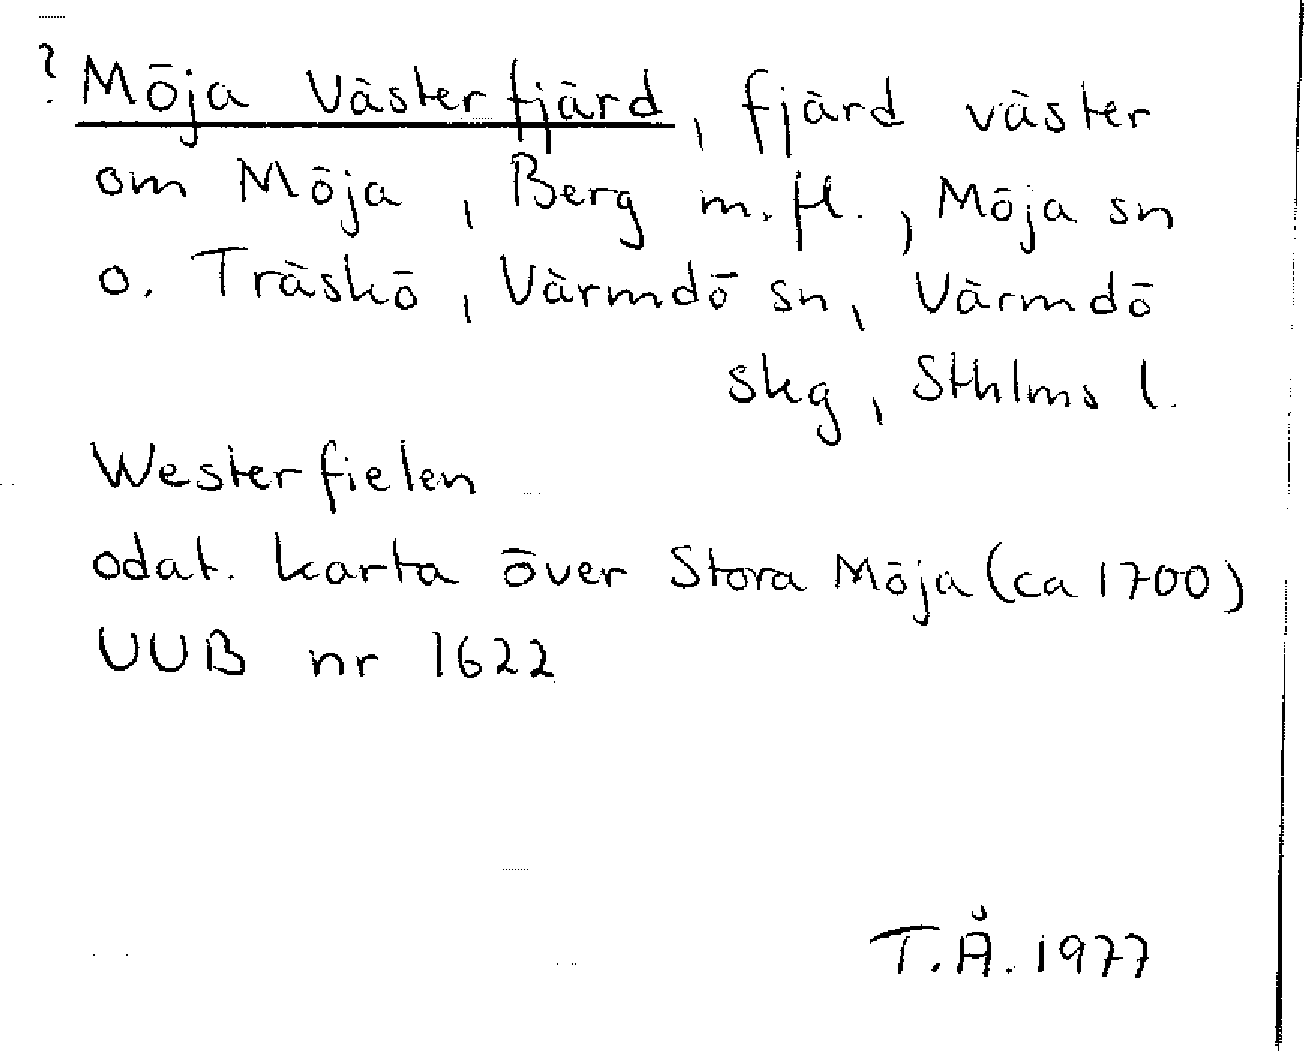 ? Möja Västerfjärd, fjärd väster
om Möja, Berg m.fl., Möja sn
o. Träskö, Värmdö sn, Värmdö
skg, Sthlms l.
Westerfielen
odat. karta över Stora Möja (ca 1700)
UUB nr 1622
T.Å. 1977